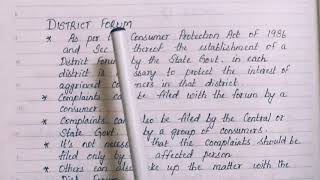 DISTRICT FORUM
* As per Consumer Protection Act of 1986
and Sec thereof the establishment of a
District Forum by the State Govt. in each
district is to protect the interest of
aggrieved in that district.
* Complaints can be filed with the forum by a
consumer.
* Complaints can be filed by the Central or
State Govt. by a group of consumers.
* It's not that the complaints should be
filed only by affected person
* Others can take up the matter with the